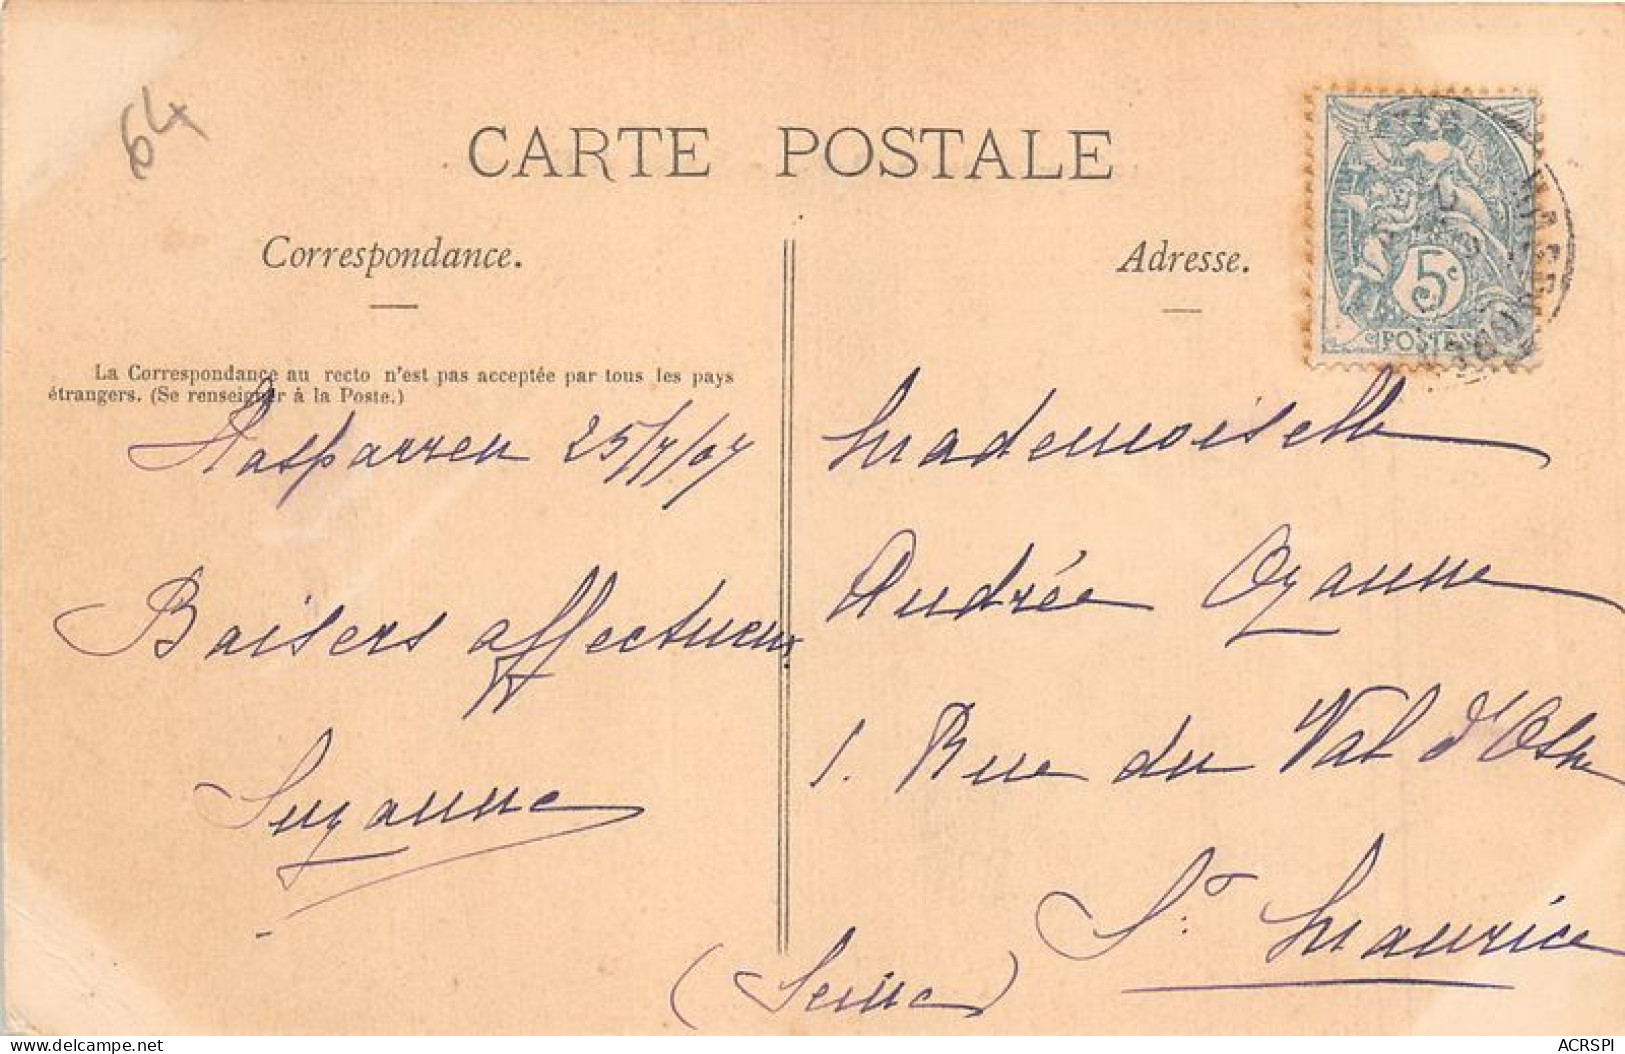 64
CARTE POSTALE
Correspondance.
Adresse.
5c
POSTES
La Correspondance au recto n'est pas acceptée par tous les pays
étrangers. (Se renseigner à la Poste.)
Hasparren 25/7/07
Baisers affectueux
Suzanne
Mademoiselle
Andrée Ozanne
1. Rue du Val d'Osne
St Maurice
(Seine)
www.delcampe.net
ACRSPI